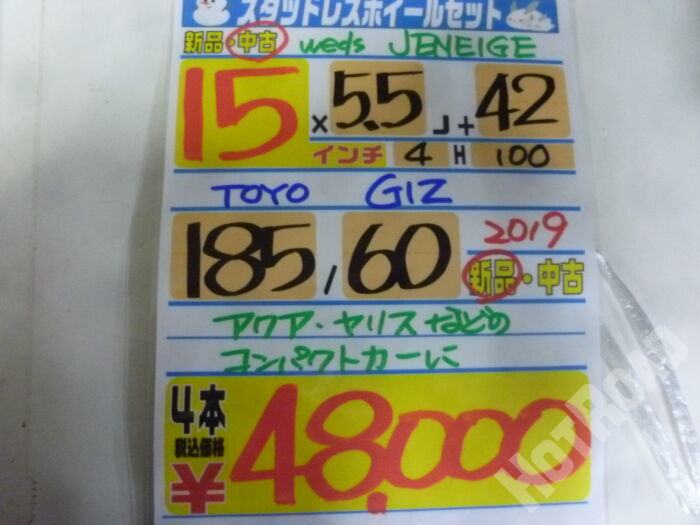 スタッドレスホイールセット
新品・中古 weds JENEIGE
15 × 5.5 J + 42
インチ 4 H 100
TOYO GIZ
185 / 60 2019
新品・中古
アクア・ヤリスなどの
コンパクトカーに
4本
税込価格
¥48.000
HotRoad